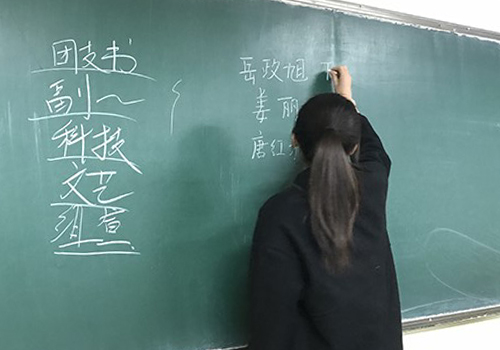 团支书
副～
科技
文艺
组宣
岳政旭
姜丽
唐红